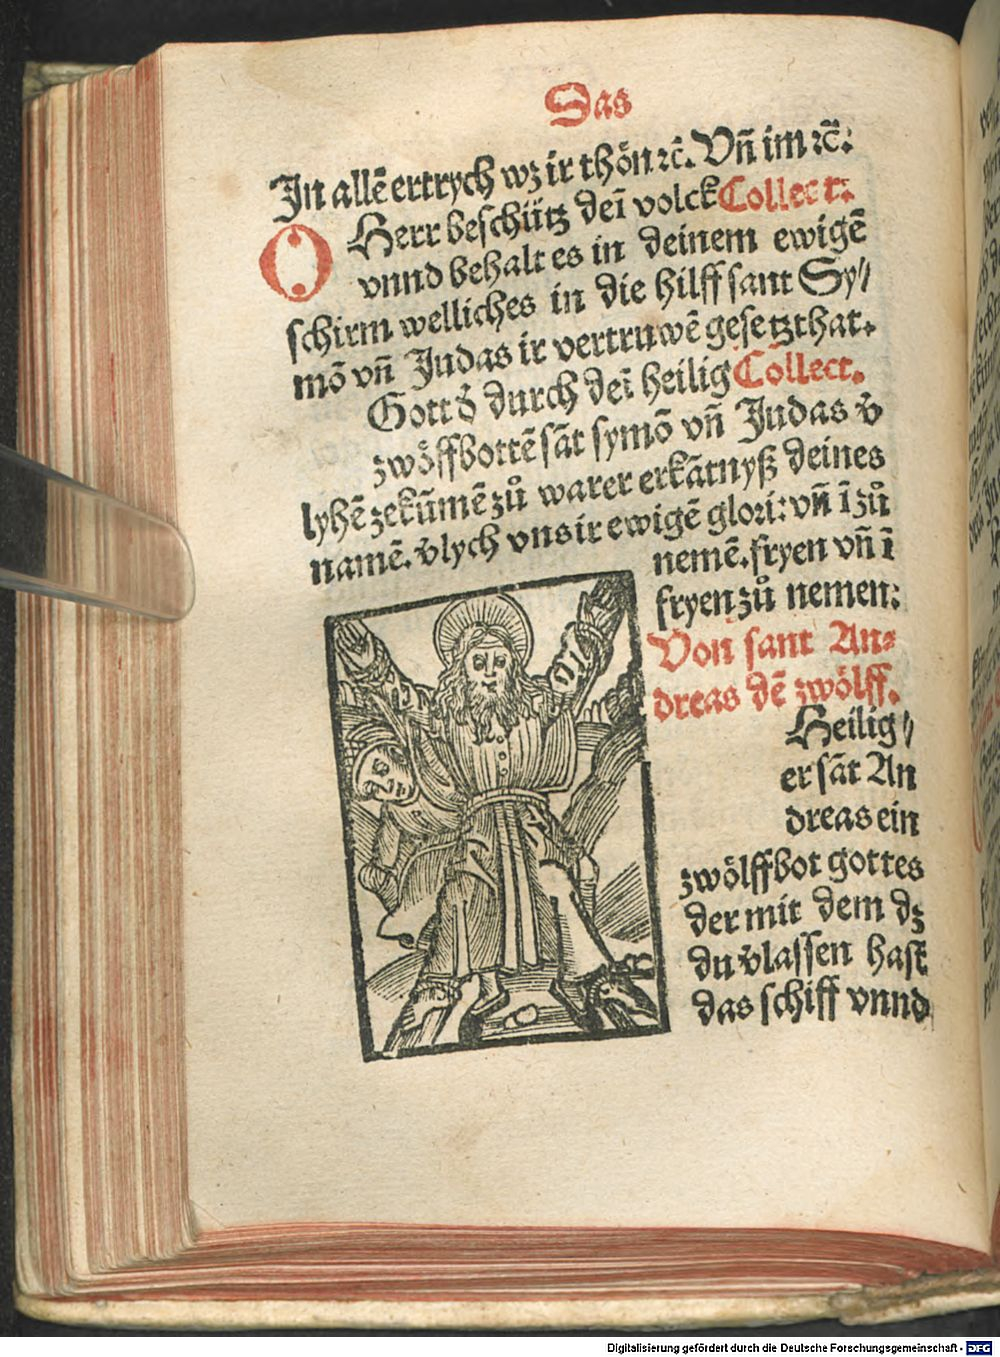 Das
In allē ertrych wz ir thōn ꝛc̄. Vn̄ im ꝛc̄:
O Herr beschütz dei volck Collect:
vnnd behalt es in deinem ewigē
schirm welliches in die hilff sant Sy//
mō vn̄ Judas ir vertruwē gesetzthat.
Gott ð durch dei heilig Collect.
zwölffbottē sāt symō vn̄ Judas v̄
lyhē zekūmē zů warer erkātnyß deines
namē. v̄lych vns ir ewigē glori: vn̄ ī zů
nemē. fryen vn̄ ī
fryen zů nemen:
Von sant An=
dreas dē zwölff.
Heilig//
er sāt An
dreas ein
zwölffbot gottes
der mit dem dz
du v̄lassen hast
das schiff vnnd
Digitalisierung gefördert durch die Deutsche Forschungsgemeinschaft - DFG